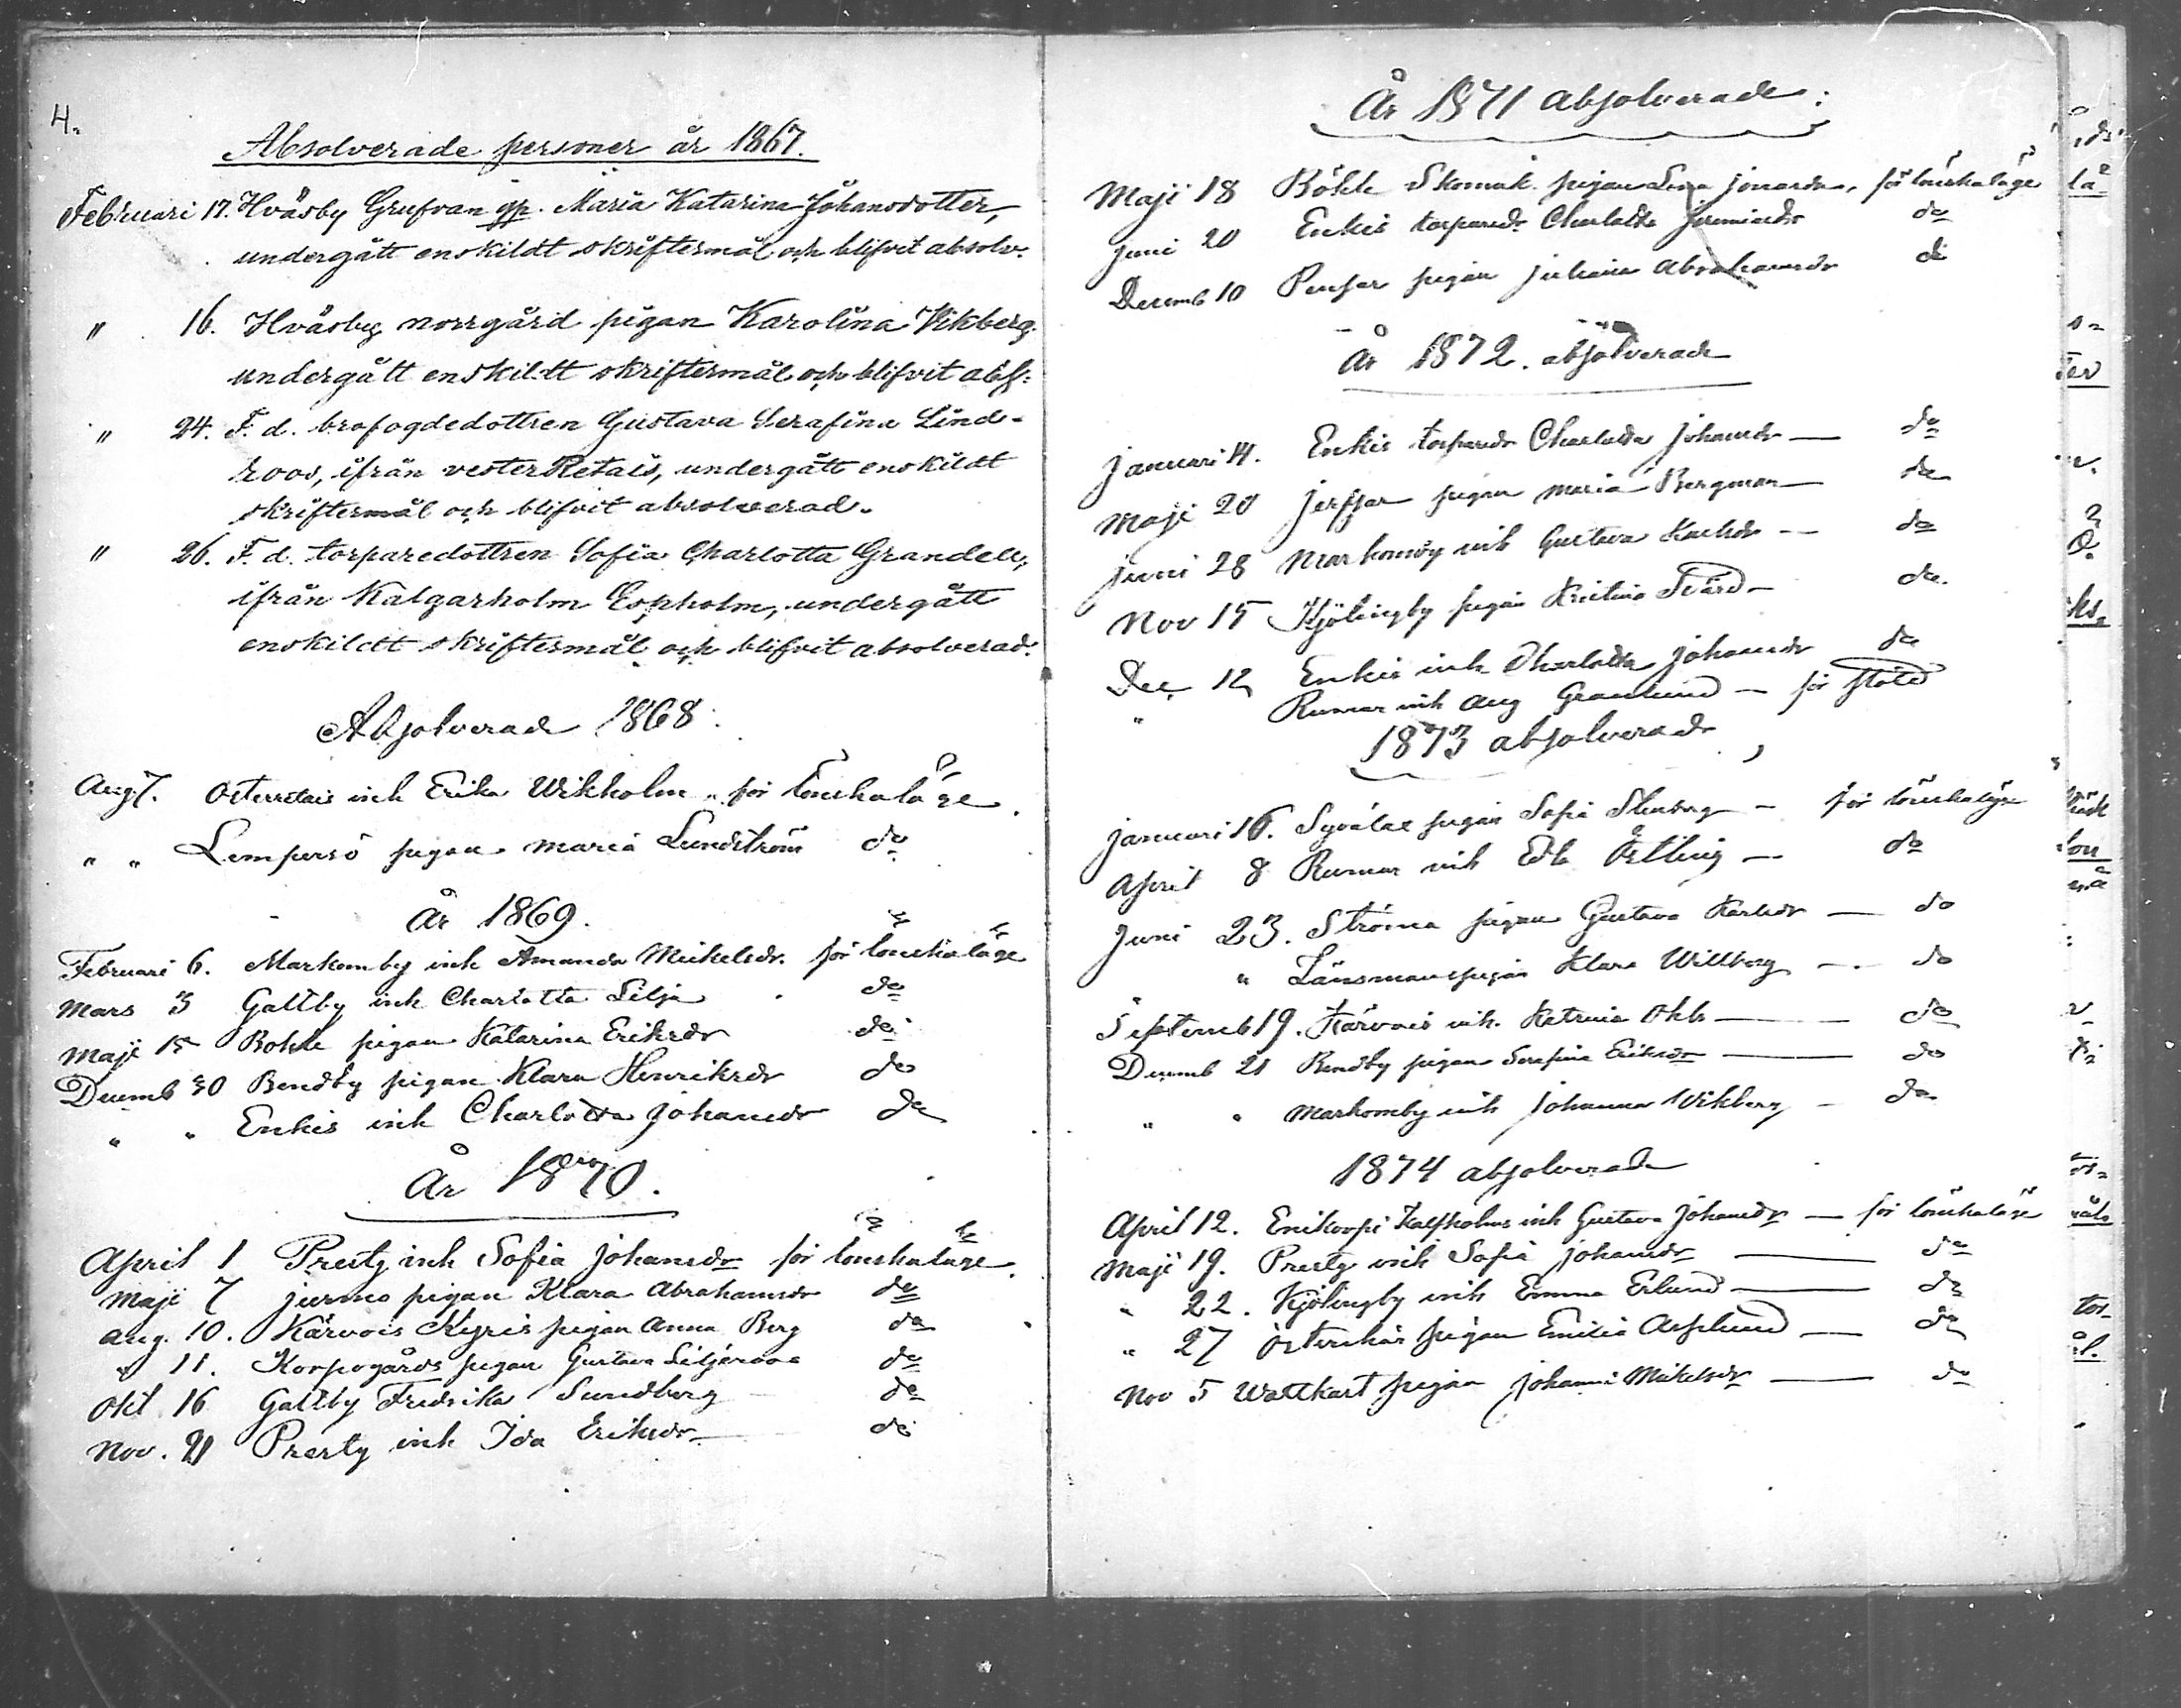 4.
Absolverade personer år 1867.
Februari 17. Hväsby Grufvan gp. Maria Katarina Johansdotter,
undergått enskildt skriftermål och blifvit absolv.
" 16. Hväsby norrgård pigan Karolina Vikberg
undergått enskildt skriftermål och blifvit abs:
" 24. F. d. brofogdedottren Gustava Serafina Lind-
roos, ifrån vester Retais, undergått enskildt
skriftermål och blifvit absolverad.
" 26. F. d. torparedottren Sofia Charlotta Grandell,
ifrån Kalgarholm Espholm, undergått
enskildt skriftermål och blifvit absolverad.
Absolverade 1868:
Aug. 7. Österretais inh Erika Wikholm för lönskaläge.
" " Lempersö pigan Maria Lundström do
År 1869.
Februari 6. Markomby inh Amanda Mickelsdr. för lönskaläge
Mars 3 Galtby inh Charlotta Lilja do
Maji 15 Bohle pigan Katarina Eriksdr do
Decemb 30 Bendby pigan Klara Henriksdr do
" " Enkis inh Charlotta Johansdr do
År 1870.
April 1 Presty inh Sofia Johansdr för lönskaläge.
Maji 7 Jurmo pigan Klara Abrahamsdr do
Aug. 10. Kärvois Kyris pigan Anna Berg do
" 11. Korpogårds pigan Gustava Liljeroos do
Okt 16 Galtby Fredrika Sundberg do
Nov. 21 Presty inh Ida Eriksdr do
År 1871 absolverade:
Maji 18 Böhle Skomak. pigan Lena Jonasdr, för lönskaläge
Juni 20 Enkis torparedr Charlotta Jeremiasdr do
Decemb 10 pigan Juliana Abrahamsdr do
År 1872. absolverade
Januari 14. Enkis torparedr Charlotta Johansdr — do
Maji 20 pigan Maria Bergman — do
Juni 28 Markomby inh Gustava Karlsdr — do
Nov 15 Kjölingby pigan Kristina Svärd — do.
Dec 12 Enkis inh Charlotta Johansdr do
" Rumar inh Aug Granlund — för stöld
1873 absolverade
Januari 16. pigan Sofia — för lönskaläge
April 8 Rumar inh Edla Östling — do
Juni 23. Ströma pigan Gustava Karlsdr — do
" Länsmanspigan Klara Willberg — do
Septemb 19. Kärvois inh. Katrina — do
Decemb 21 Bendby pigan Serafina Eriksdr — do
" " Markomby inh Johanna Wikberg — do
1874 absolverade
April 12. Kalfholms inh Gustava Johansdr — för lönskaläge
Maji 19. Presty inh Sofia Johansdr — do
" 22. Kjölingby inh Emma Eklund — do
" 27 Österskär pigan Emilia Asplund — do
Nov 5 Wattkast pigan Johanna Mikelsdr — do